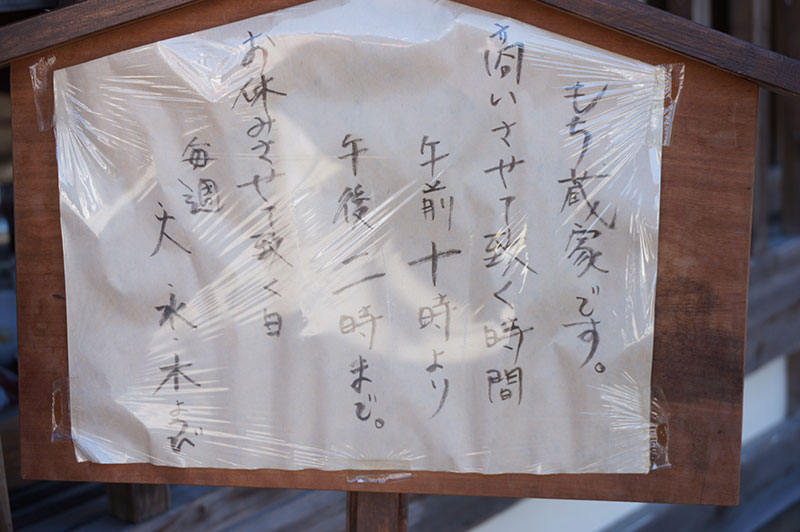 もち蔵家です。
商いさせて致く時間
午前十時より
午後二時まで。
お休みさせて致く日
毎週
火 水・木よび